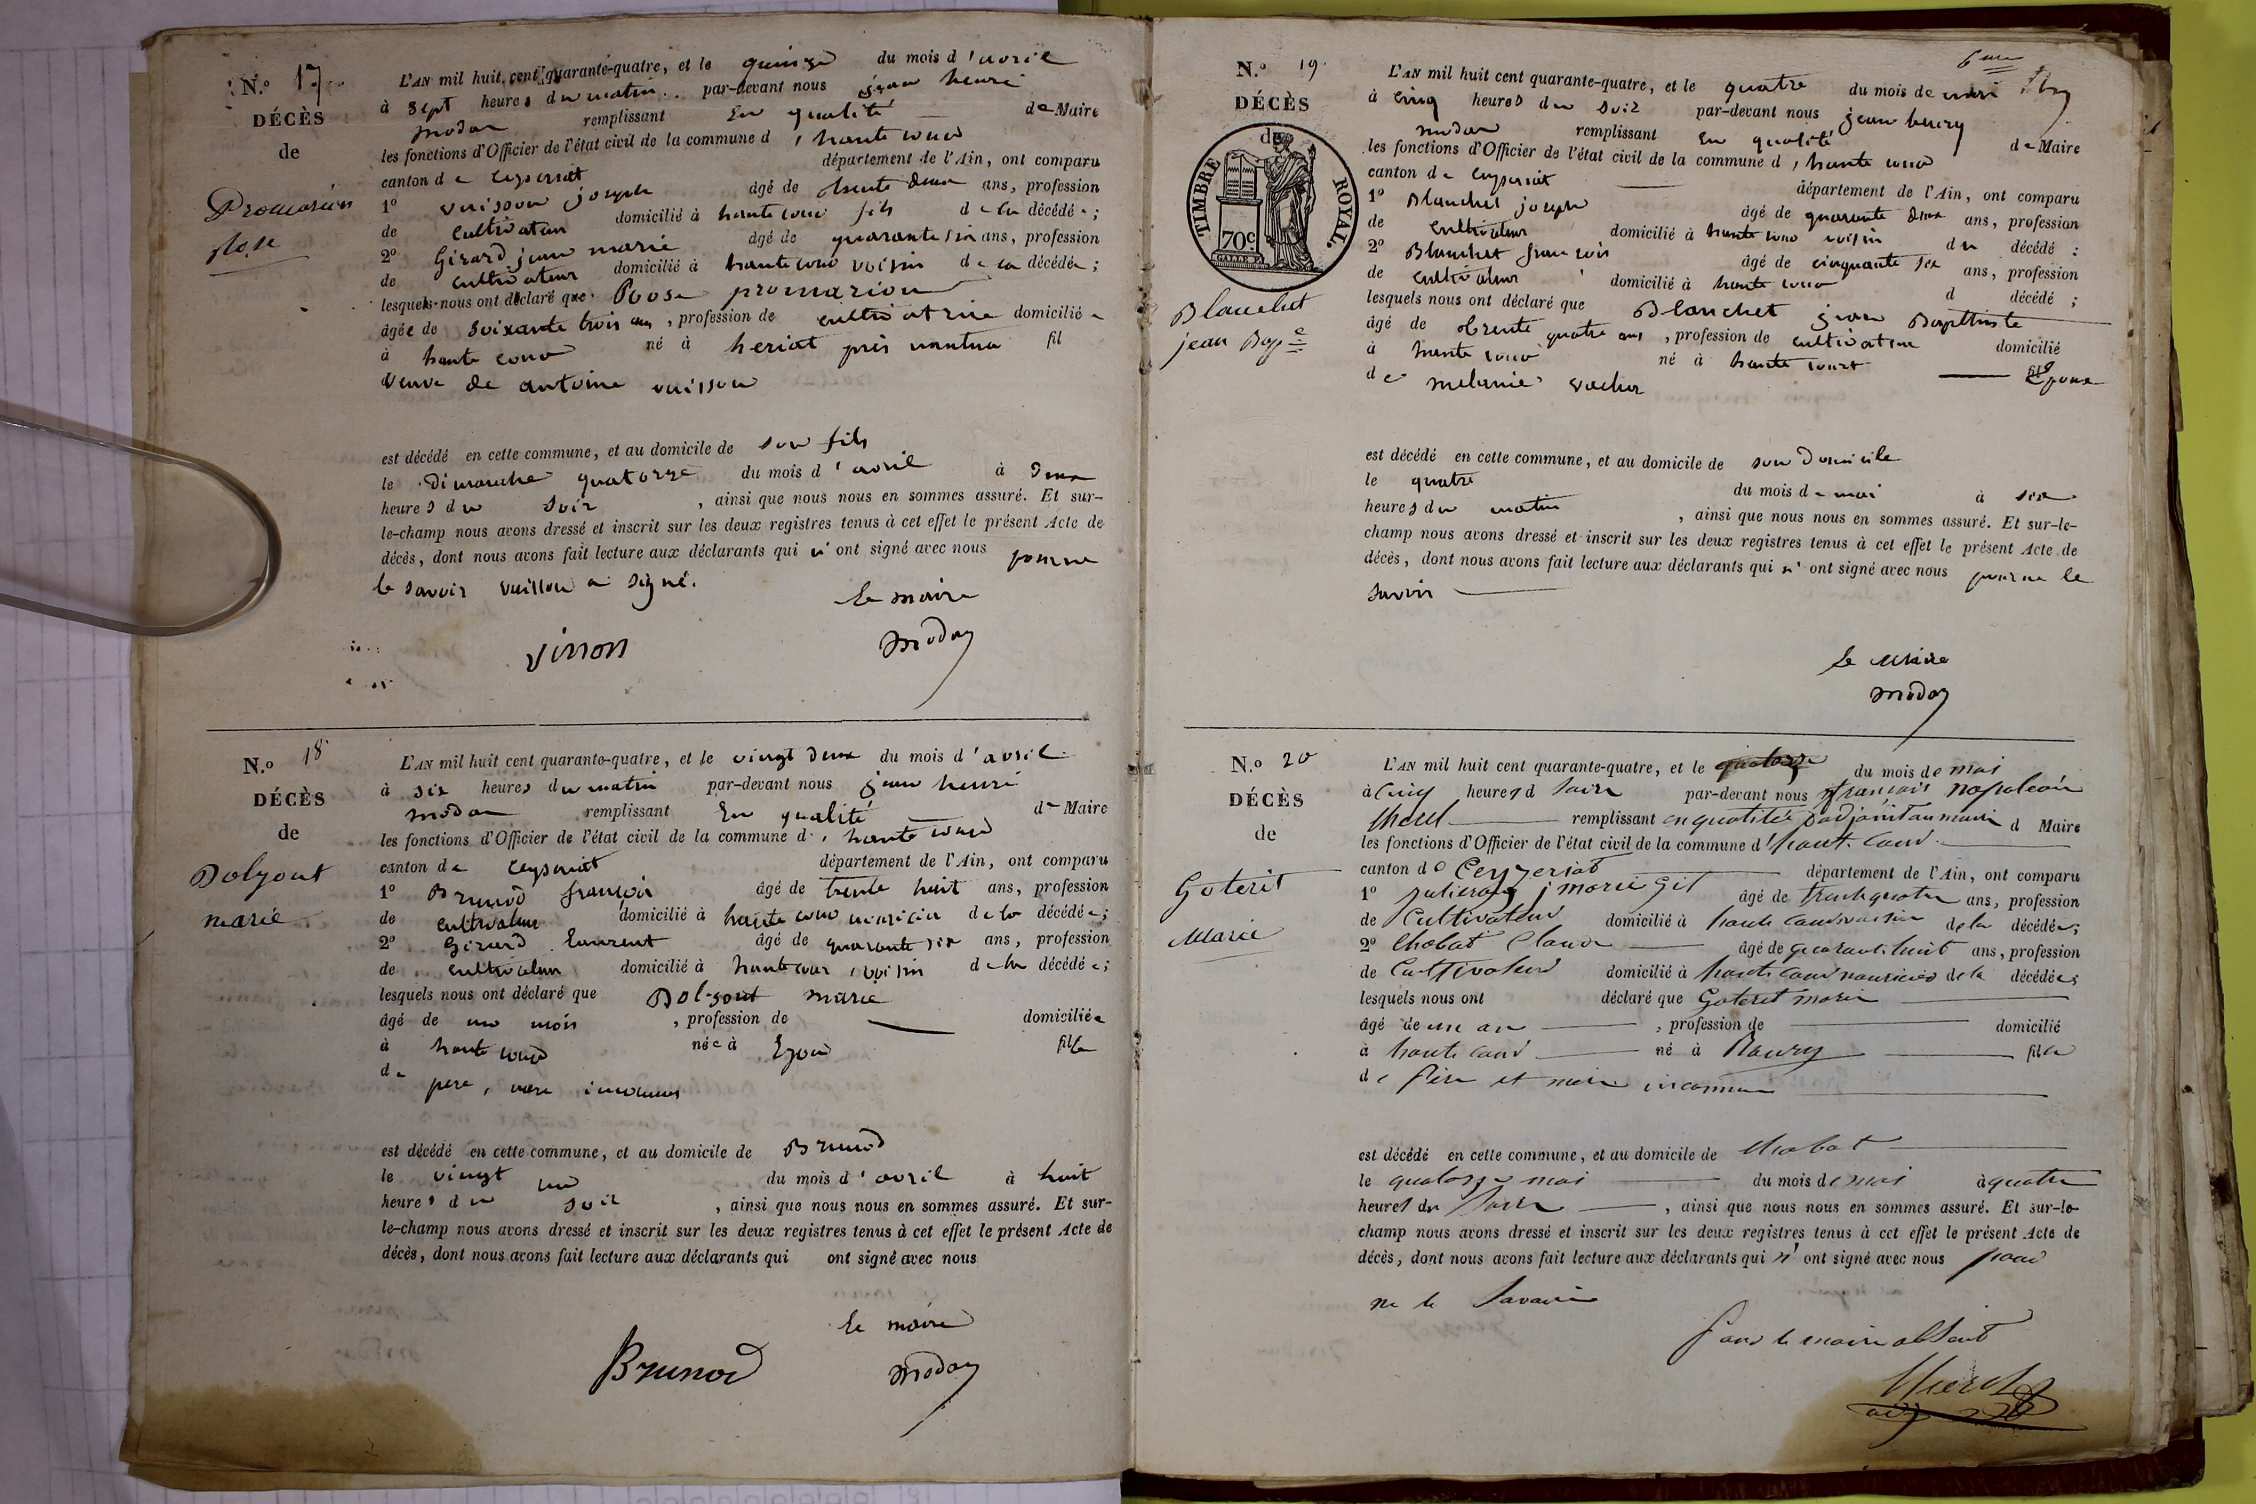 N.o 17
DÉCÈS
de
Promasion
Rose
L'AN mil huit cent quarante-quatre, et le quinze du mois d'avril
à sept heures du matin par-devant nous jean henri
modar remplissant En qualité de Maire
les fonctions d'Officier de l'état civil de la commune d'hautecour
canton de ceyseriat département de l'Ain, ont comparu
1o vuisson joseph âgé de trente deux ans, profession
de cultivateur domicilié à hautecour fils de la décédée;
2o Girard jean marie âgé de quarante six ans, profession
de cultivateur domicilié à hautecour voisin de la décédée;
lesquels nous ont déclaré que Rose promasion
âgée de soixante trois ans, profession de cultivatrice domiciliée
à hautecour né à heriat près nantua fil
veuve de antoine vuisson
est décédé en cette commune, et au domicile de son fils
le dimanche quatorze du mois d'avril à deux
heures du soir, ainsi que nous nous en sommes assuré. Et sur-
le-champ nous avons dressé et inscrit sur les deux registres tenus à cet effet le présent Acte de
décès, dont nous avons fait lecture aux déclarants qui n'ont signé avec nous pour ne
le savoir vuisson a signé.
le maire
modar
N.o 18
DÉCÈS
de
Dolgout
marie
L'AN mil huit cent quarante-quatre, et le vingt deux du mois d'avril
à six heures du matin par-devant nous jean henri
modar remplissant En qualité de Maire
les fonctions d'Officier de l'état civil de la commune d'hautecour
canton de ceyseriat département de l'Ain, ont comparu
1o Brunod françois âgé de trente huit ans, profession
de cultivateur domicilié à hautecour nouricier de la décédée;
2o Girard laurent âgé de quarante six ans, profession
de cultivateur domicilié à hautecour voisin de la décédée;
lesquels nous ont déclaré que Dolgout marie
âgé de un mois, profession de domiciliée
à hautecour née à Lyon fille
de pere, mere inconnus
est décédé en cette commune, et au domicile de Brunod
le vingt un du mois d'avril à huit
heures du soir, ainsi que nous nous en sommes assuré. Et sur-
le-champ nous avons dressé et inscrit sur les deux registres tenus à cet effet le présent Acte de
décès, dont nous avons fait lecture aux déclarants qui ont signé avec nous
le maire
Brunod modar
6me
N.o 19
DÉCÈS
de
TIMBRE ROYAL.
70c
Blanchet
jean Bapte
L'AN mil huit cent quarante-quatre, et le quatre du mois de mai
à cinq heures du soir par-devant nous jean henry
modar remplissant En qualité de Maire
les fonctions d'Officier de l'état civil de la commune d'hautecour
canton de ceyseriat département de l'Ain, ont comparu
1o Blanchet joseph âgé de quarante deux ans, profession
de cultivateur domicilié à hautecour voisin du décédé;
2o Blanchet françois âgé de cinquante six ans, profession
de cultivateur domicilié à hautecour d décédé;
lesquels nous ont déclaré que Blanchet jean Baptiste
âgé de trente quatre ans, profession de cultivateur domicilié
à hautecour né à hautecourt fils Epoux
de melanie vacher
est décédé en cette commune, et au domicile de son domicile
le quatre du mois de mai à six
heures du matin, ainsi que nous nous en sommes assuré. Et sur-le-
champ nous avons dressé et inscrit sur les deux registres tenus à cet effet le présent Acte de
décès, dont nous avons fait lecture aux déclarants qui n'ont signé avec nous pour ne le
savoir
le Maire
modar
N.o 20
DÉCÈS
de
Goterit
Marie
L'AN mil huit cent quarante-quatre, et le quatorze du mois de mai
à Cinq heures d soire par-devant nous françois napoléon
remplissant en qualitée d'adjoint au maire d Maire
les fonctions d'Officier de l'état civil de la commune d'hautecour
canton de Ceyzeriat département de l'Ain, ont comparu
1o j marie âgé de trente quatre ans, profession
de Cultivateur domicilié à hautecour voisin de la décédée;
2o Chobat Claude âgé de quarante huit ans, profession
de Cultivateur domicilié à hautecour nouricier de la décédée;
lesquels nous ont déclaré que Goteret marie
âgé de un an, profession de domicilié
à hautecour né à Bourg fille
de Père et mère inconnu
est décédé en cette commune, et au domicile de Chobat
le quatorze mai du mois de mai à quatre
heures du soire, ainsi que nous nous en sommes assuré. Et sur-le-
champ nous avons dressé et inscrit sur les deux registres tenus à cet effet le présent Acte de
décès, dont nous avons fait lecture aux déclarants qui n'ont signé avec nous pour
ne le savoire
pour le maire absent